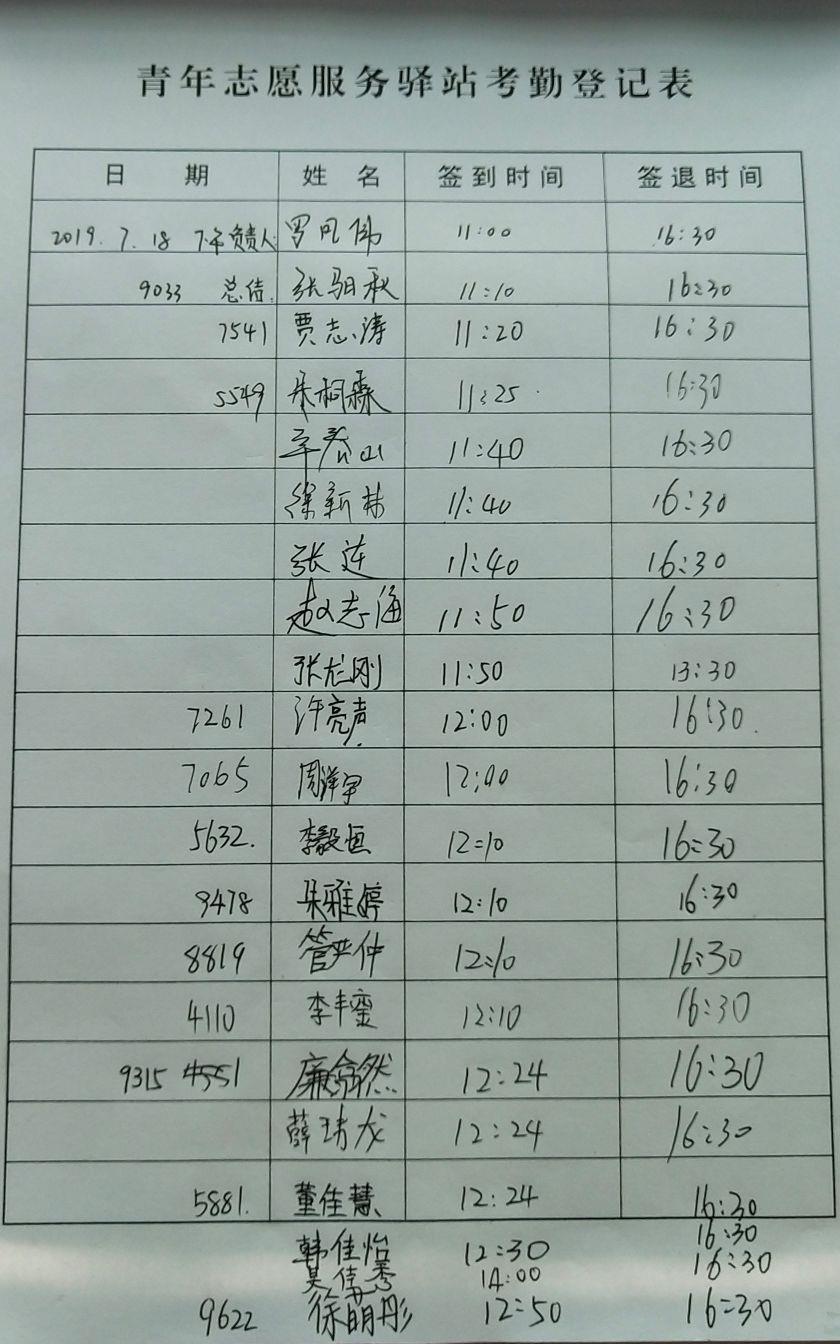 青年志愿服务驿站考勤登记表
日 期 姓 名 签到时间 签退时间
2019.7.18 下午负责人 罗凤伟 11:00 16:30
9033 总结. 张驲秋 11:10 16:30
7541 贾志涛 11:20 16:30
5549 朱桐霖 11:25 16:30
辛春山 11:40 16:30
徐新林 11:40 16:30
张莲 11:40 16:30
赵志海 11:50 16:30
张龙刚 11:50 13:30
7261 许亮声 12:00 16:30
7065 周洋宇 12:00 16:30
5632. 李毅恒 12:10 16:30
9478 朱雅婷 12:10 16:30
8819 管严仲 12:10 16:30
4110 李丰銮 12:10 16:30
9315 4551 廉然 12:24 16:30
薛龙 12:24 16:30
5881. 董佳慧 12:24 16:30
16:30
韩佳怡 12:30 16:30
吴佳秀 14:00
9622 徐萌彤 12:50 16:30